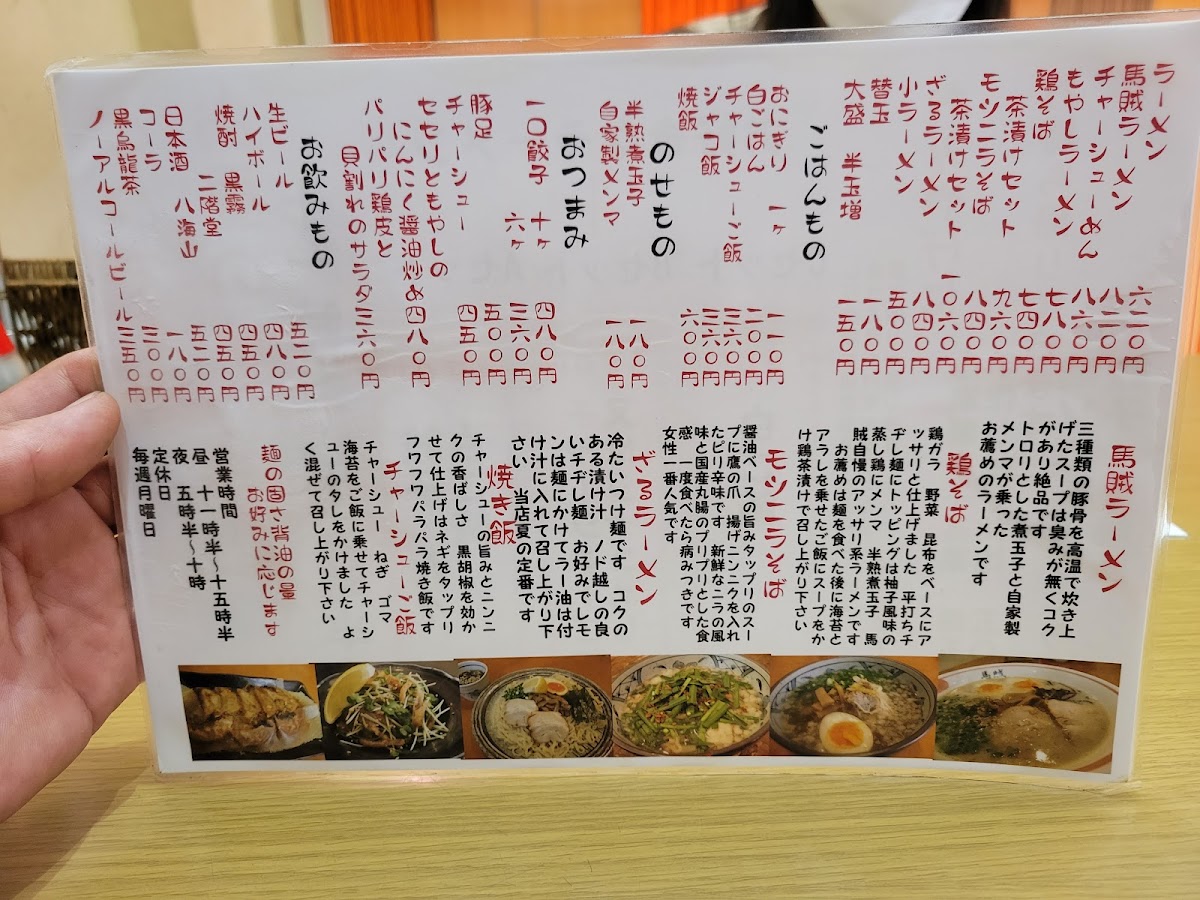 ラーメン 六二〇円
馬賊ラーメン 八二〇円
チャーシューめん 八六〇円
もやしラーメン 七八〇円
鶏そば 七四〇円
茶漬けセット 九六〇円
モツニラそば 八四〇円
茶漬けセット 一〇六〇円
ざるラーメン 八四〇円
小ラーメン 五〇〇円
替玉 一八〇円
大盛 半玉増 一五〇円
ごはんもの
おにぎり 一ヶ 一一〇円
白ごはん 二〇〇円
チャーシューご飯 三六〇円
ジャコ飯 三六〇円
焼飯 六〇〇円
のせもの
半熟煮玉子 一八〇円
自家製メンマ 一八〇円
おつまみ
一口餃子 十ヶ 四八〇円
六ヶ 三六〇円
豚足 五〇〇円
チャーシュー 四五〇円
セセリともやしの
にんにく醤油炒め 四八〇円
パリパリ鶏皮と
貝割れのサラダ 三六〇円
お飲みもの
生ビール 五二〇円
ハイボール 四八〇円
焼酎 黒霧 四五〇円
二階堂 四五〇円
日本酒 八海山 五二〇円
コーラ 一八〇円
黒烏龍茶 三〇〇円
ノーアルコールビール 三五〇円
馬賊ラーメン
三種類の豚骨を高温で炊き上
げたスープは臭みが無くコク
があり絶品です
トロリとした煮玉子と自家製
メンマが乗った
お薦めのラーメンです
鶏そば
鶏ガラ 野菜 昆布をベースにア
ッサリと仕上げました 平打ちチ
ヂし麺にトッピングは柚子風味の
蒸し鶏にメンマ 半熟煮玉子 馬
賊自慢のアッサリ系ラーメンです
お薦めは麺を食べた後に海苔と
アラしを乗せたご飯にスープをか
け鶏茶漬けで召し上がり下さい
モツニラそば
醤油ベースの旨みタップリのスー
プに鷹の爪 揚げニンニクを入れ
たピリ辛味です 新鮮なニラの風
味と国産丸腸のプリプリとした食
感 一度食べたら病みつきです
女性一番人気です
ざるラーメン
冷たいつけ麺です コクの
ある漬け汁 ノド越しの良
いチヂし麺 お好みでレモ
ンは麺にかけてラー油は付
け汁に入れて召し上がり下
さい 当店夏の定番です
焼き飯
チャーシューの旨みとニンニ
クの香ばしさ 黒胡椒を効か
せて仕上げはネギをタップリ
フワフワパラパラ焼き飯です
チャーシューご飯
チャーシュー ねぎ ゴマ
海苔をご飯に乗せてチャーシ
ューのタレをかけました よ
く混ぜて召し上がり下さい
麺の固さ背油の量
お好みに応じます
営業時間
昼 十一時半～十五時半
夜 五時半～十時
定休日
毎週月曜日